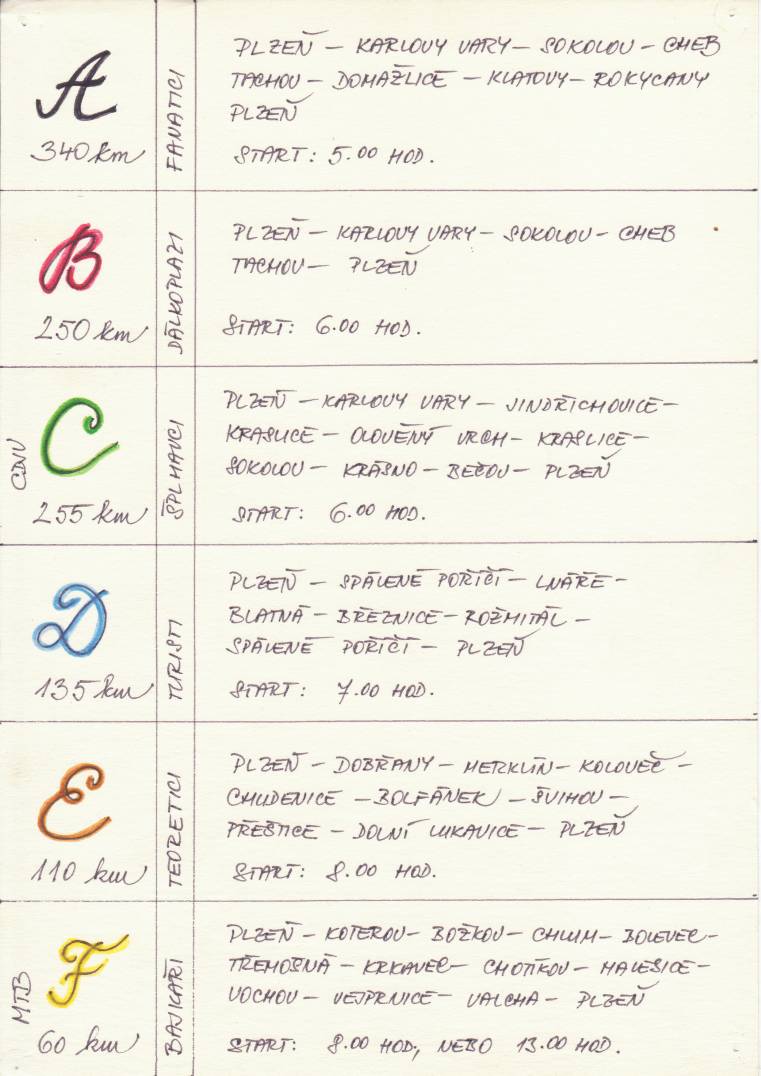 A
340 km
FANATICI
PLZEŇ – KARLOVY VARY – SOKOLOV – CHEB
TACHOV – DOMAŽLICE – KLATOVY – ROKYCANY
PLZEŇ
START: 5.00 HOD.
B
250 km
DÁLKOPLAZI
PLZEŇ – KARLOVY VARY – SOKOLOV – CHEB
TACHOV – PLZEŇ
START: 6.00 HOD.
C
255 km
ŠPLHAVCI
PLZEŇ – KARLOVY VARY – JINDŘICHOVICE –
KRASLICE – OLOVĚNÝ VRCH – KRASLICE –
SOKOLOV – KRÁSNO – BEČOV – PLZEŇ
START: 6.00 HOD.
D
135 km
TURISTI
PLZEŇ – SPÁLENÉ POŘÍČÍ – LNÁŘE –
BLATNÁ – BŘEZNICE – ROŽMITÁL –
SPÁLENÉ POŘÍČÍ – PLZEŇ
START: 7.00 HOD.
E
110 km
TEORETICI
PLZEŇ – DOBŘANY – MERKLÍN – KOLOVEČ –
CHUDENICE – BOLFÁNEK – ŠVIHOV –
PŘEŠTICE – DOLNÍ LUKAVICE – PLZEŇ
START: 8.00 HOD.
MTB
F
60 km
BAJKAŘI
PLZEŇ – KOTEROV – BOŽKOV – CHLUM – BOLEVEC –
TŘEMOŠNÁ – KRKAVEC – CHOTÍKOV – MALESICE –
VOCHOV – VEJPRNICE – VALCHA – PLZEŇ
START: 8.00 HOD., NEBO 13.00 HOD.